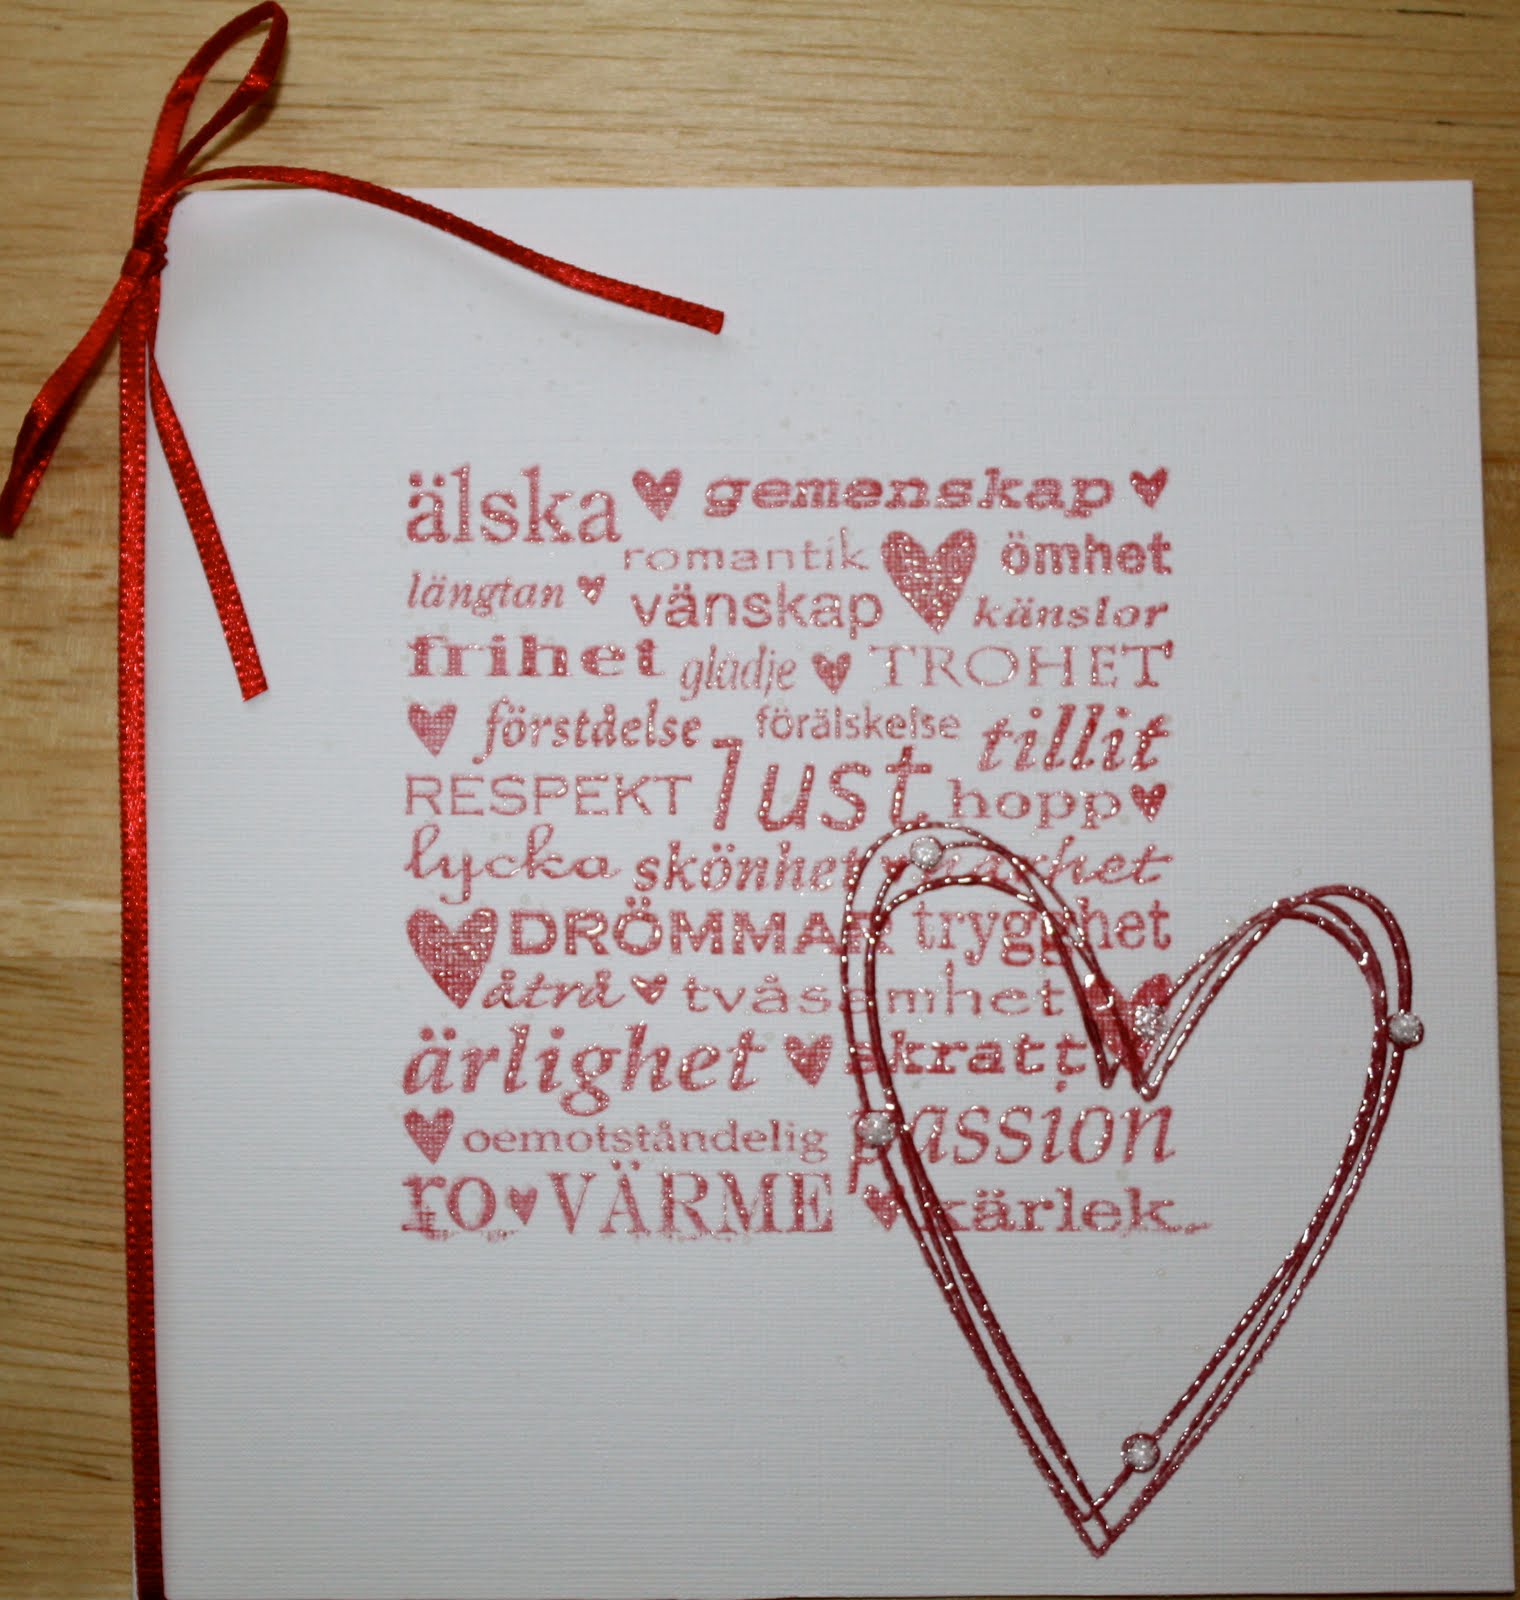 älska gemenskap
romantik ömhet
längtan vänskap känslor
frihet glädje TROHET
förståelse förälskelse tillit
RESPEKT lust hopp
lycka skönhet
DRÖMMAR trygghet
åtrå tvåsamhet
ärlighet skratt
oemotståndelig passion
ro VÄRME kärlek